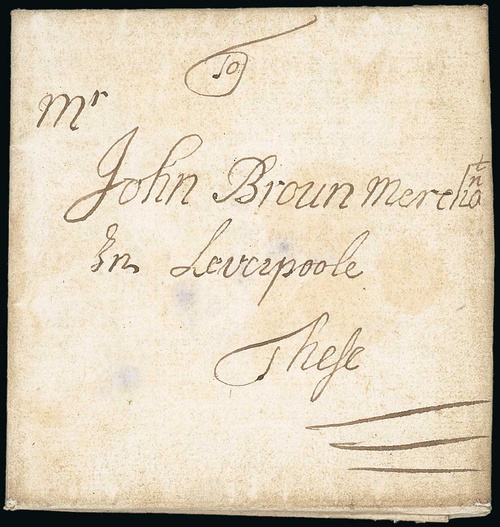 To
Mr
John Broun Merchant
In Leverpoole
These